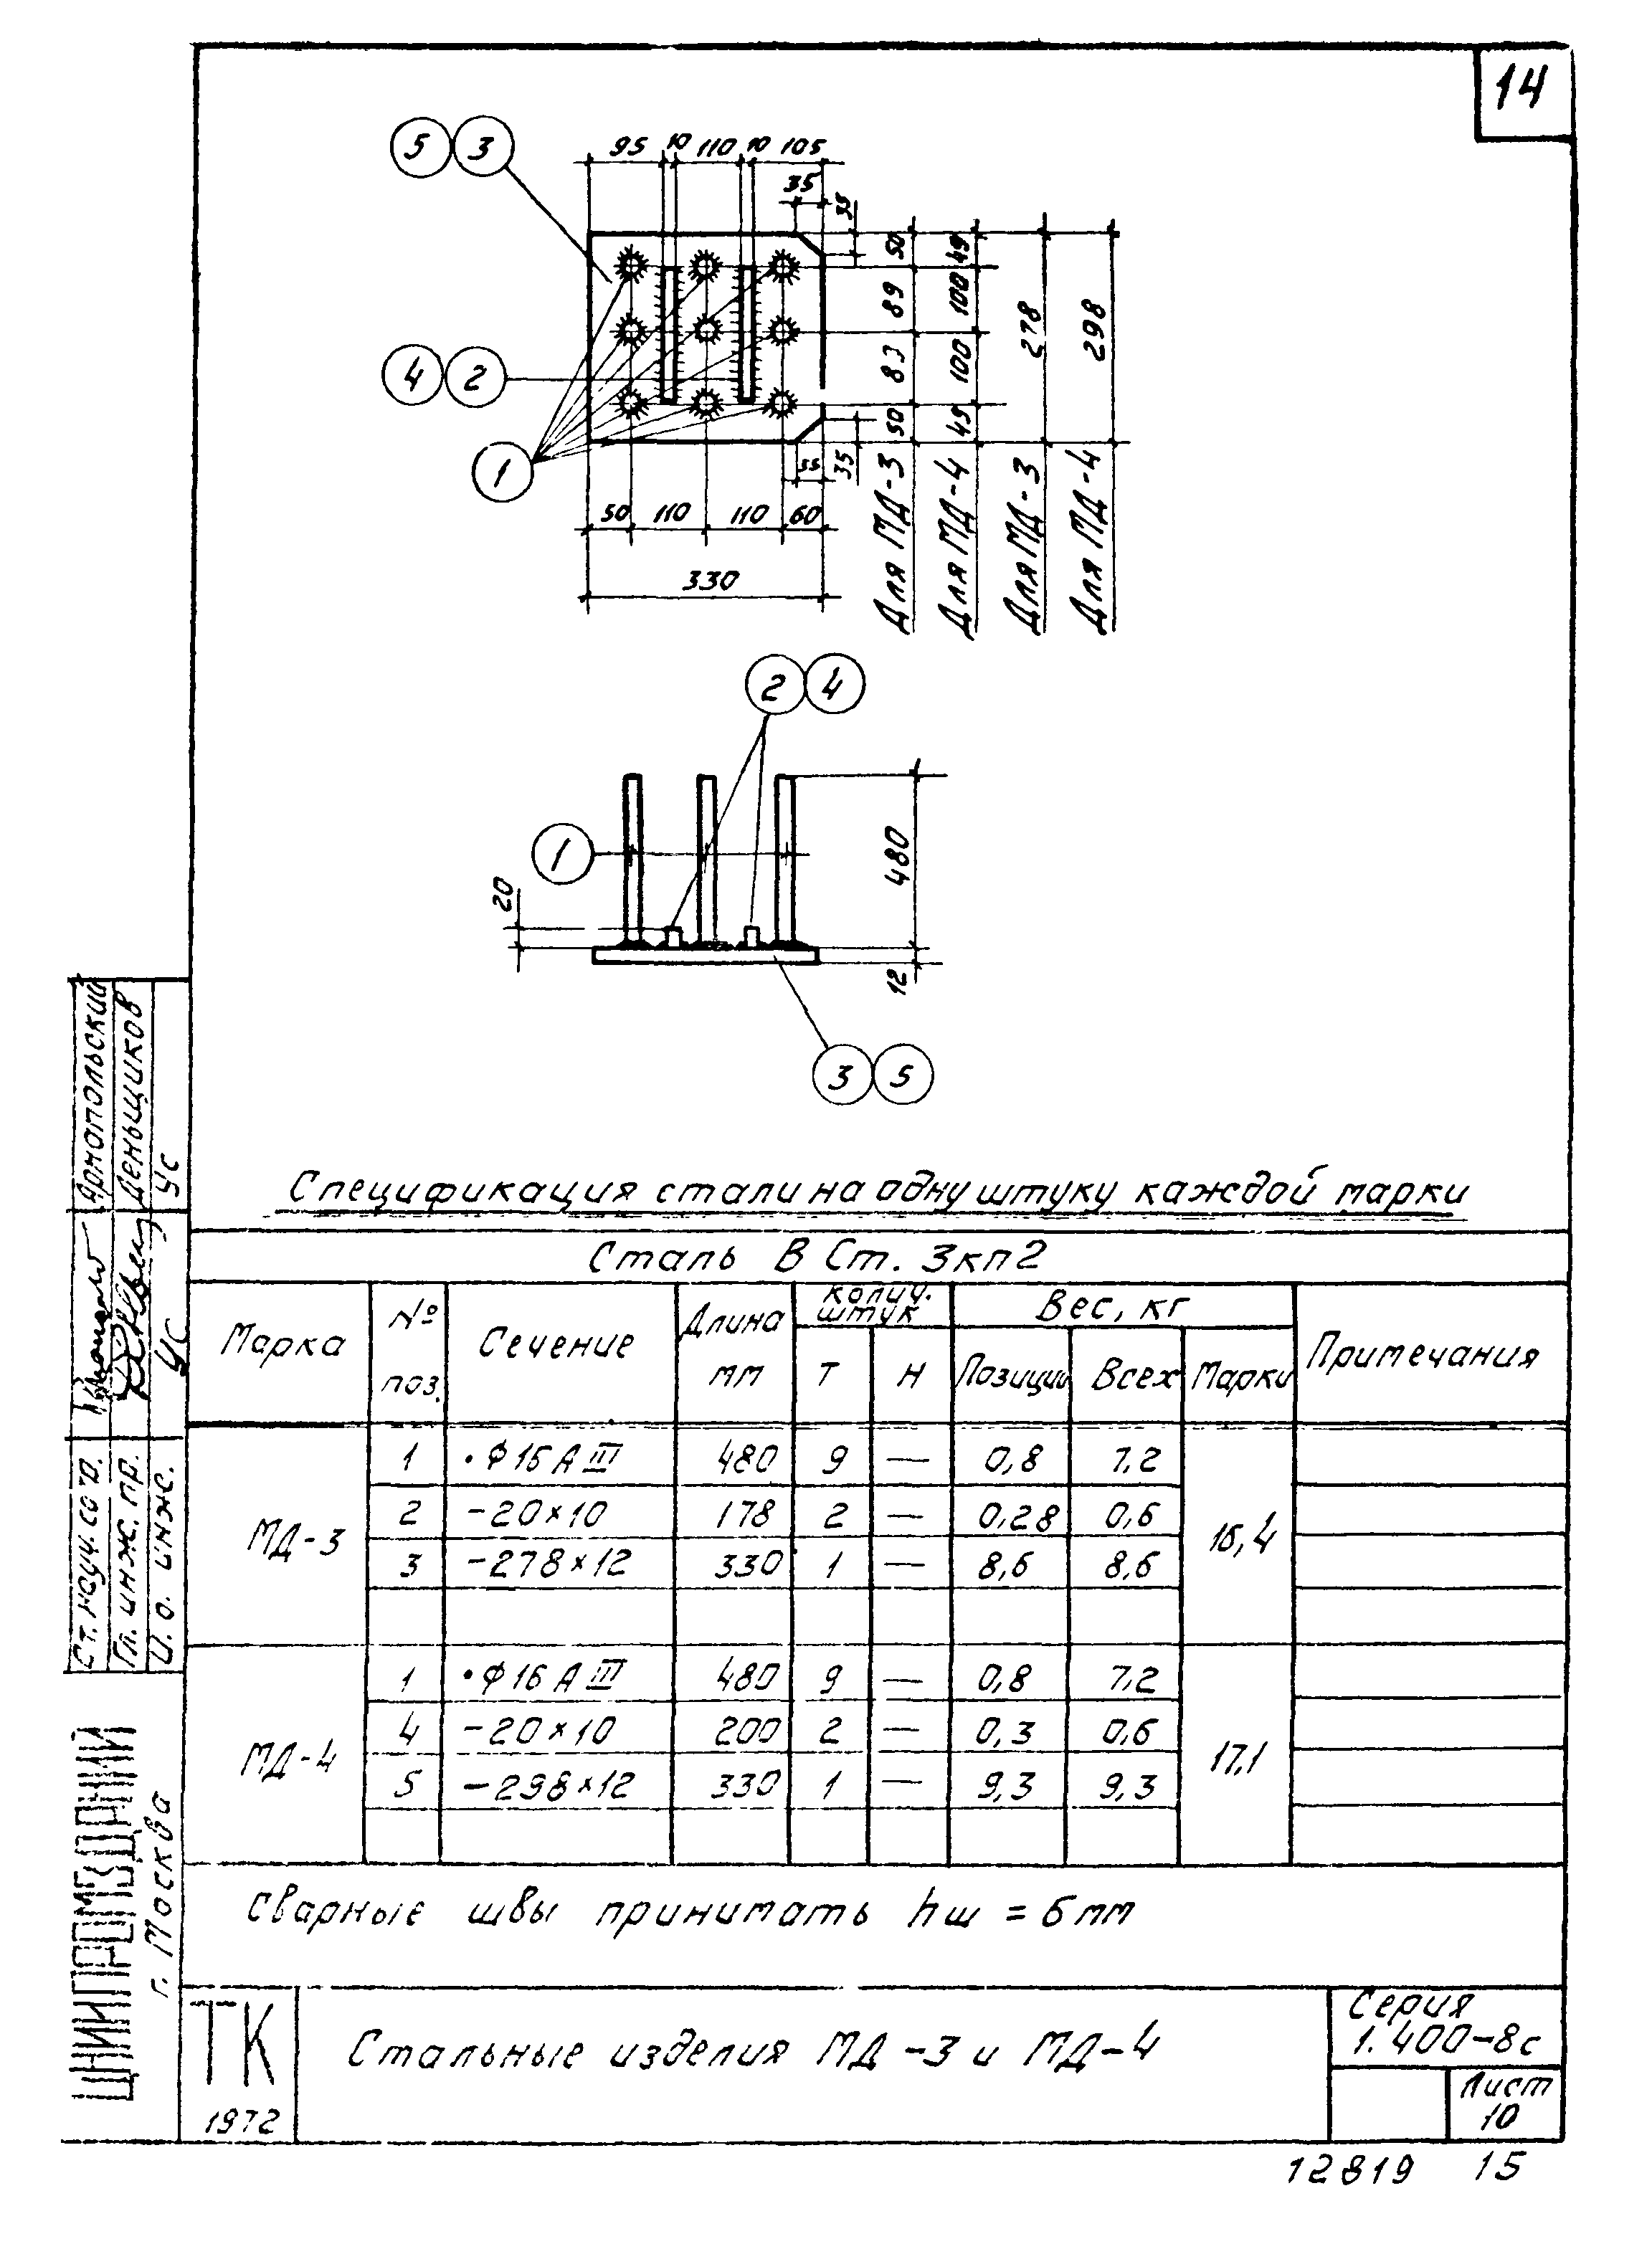 14
5 3
95 10 110 10 105
35
35
50 89 83 50
49 100 100 49
278
298
4 2
1
35
35
50 110 110 60
330
Для МД-3
Для МД-4
Для МД-3
Для МД-4
2 4
1
20
480
12
3 5
Спецификация стали на одну штуку каждой марки
Сталь В Ст. 3кп2
Марка № поз. Сечение Длина мм Колич. штук Вес, кг Примечания
Т Н Позиции Всех Марки
МД-3 16,4
1 • Ф16 А III 480 9 — 0,8 7,2
2 -20×10 178 2 — 0,28 0,6
3 -278×12 330 1 — 8,6 8,6
МД-4 17,1
1 • Ф16 А III 480 9 — 0,8 7,2
4 -20×10 200 2 — 0,3 0,6
5 -298×12 330 1 — 9,3 9,3
Сварные швы принимать hш = 6 мм
ТК
1972
Стальные изделия МД-3 и МД-4
Серия
1.400-8с
Лист
10
12819 15
Ст. науч. сотр. Ярмопольский
Гл. инж. пр. Деньщиков
И. о. инж. Ус Ус
ЦНИИПРОМЗДАНИЙ
г. Москва